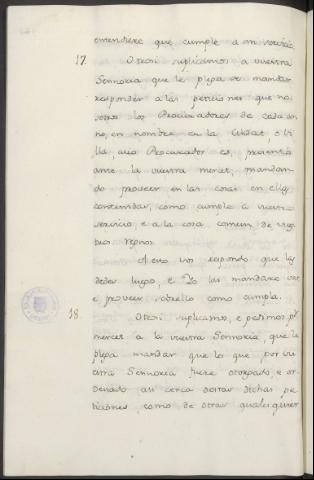 entendiere que cumple a mi servicio.
17. Otrosi suplicamos a vuestra
Sennoria que le plega de mandar
responder a las peticiones que no-
sotros los Procuradores de cada un-
no, en nombre de la Cibdat, o Vi-
lla, cuio Procurador es, presentó
ante la vuestra merced, mandan-
do proveer en las cosas en ellas
contenidas, como cumple a vuestro
servicio, e a la cosa comun de vues-
tros regnos.
A esto vos respondo que las
dedes luego, e Yo las mandaré ver
e proveer sobrello como cumpla.
18. Otrosi suplicamos, e pedimos por
merced a la vuestra Sennoria, que le
plega mandar que lo que por vu-
estra Sennoria fuere otorgado, e or-
denado asi cerca destas dichas pe-
ticiones, como de otras qualesquier